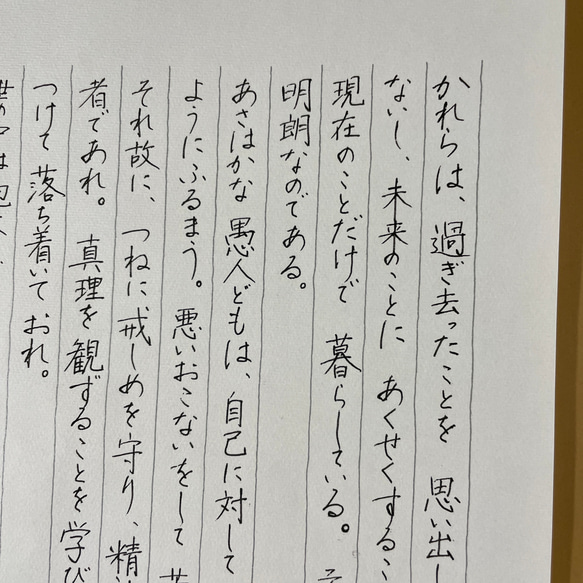 かれらは、過ぎ去ったことを 思い出し
ないし、未来のことに あくせくするこ
現在のことだけで 暮らしている。
明朗なのである。
あさはかな愚人どもは、自己に対して
ようにふるまう。悪いおこないをして
それ故に、つねに戒しめを守り、精
者であれ。真理を観ずることを 学び
つけて 落ち着いて おれ。